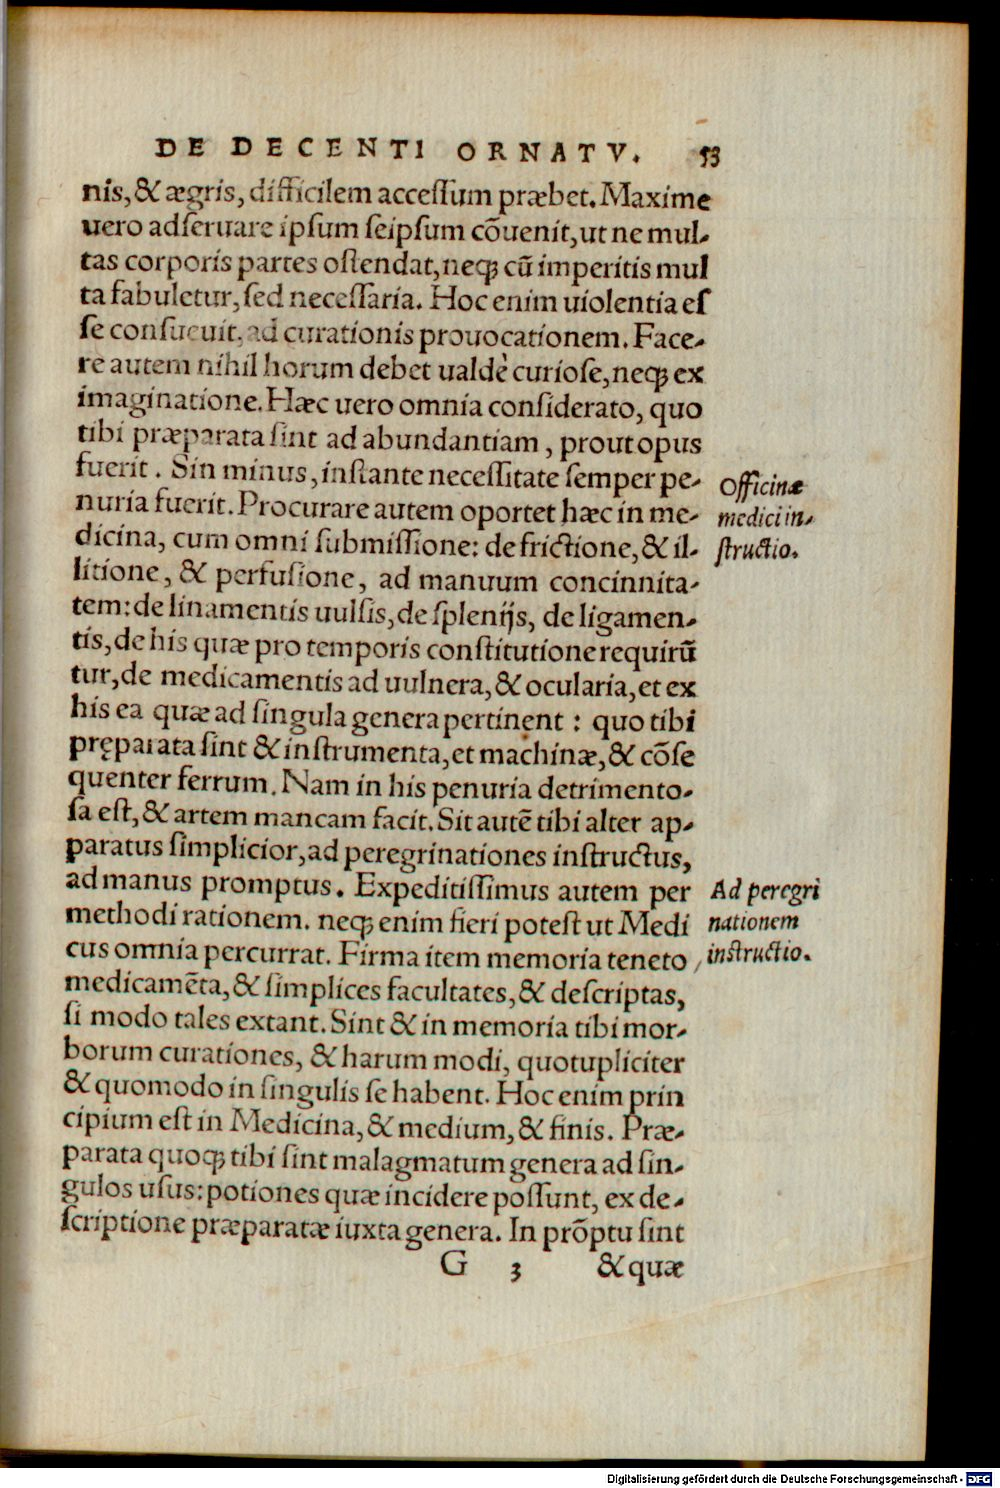 DE DECENTI ORNATV. 53
nis, & ægris, difficilem accessum præbet. Maxime
uero adseruare ipsum seipsum cōuenit, ut ne mul-
tas corporis partes ostendat, neq; cū imperitis mul
ta fabuletur, sed necessaria. Hoc enim uiolentia es
se consueuit, ad curationis prouocationem. Face-
re autem nihil horum debet ualdè curiose, neq; ex
imaginatione. Hæc uero omnia considerato, quo
tibi præparata sint ad abundantiam, prout opus
fuerit. Sin minus, instante necessitate semper pe-
nuria fuerit. Procurare autem oportet hæc in me-
dicina, cum omni submissione: de frictione, & il-
litione, & perfusione, ad manuum concinnita-
tem: de linamentis uulsis, de splenijs, de ligamen-
tis, de his quæ pro temporis constitutione requirū
tur, de medicamentis ad uulnera, & ocularia, et ex
his ea quæ ad singula genera pertinent: quo tibi
pręparata sint & instrumenta, et machinæ, & cōse
quenter ferrum. Nam in his penuria detrimento-
sa est, & artem mancam facit. Sit autē tibi alter ap-
paratus simplicior, ad peregrinationes instructus,
ad manus promptus. Expeditissimus autem per
methodi rationem. neq; enim fieri potest ut Medi
cus omnia percurrat. Firma item memoria teneto
medicamēta, & simplices facultates, & descriptas,
si modo tales extant. Sint & in memoria tibi mor-
borum curationes, & harum modi, quotupliciter
& quomodo in singulis se habent. Hoc enim prin
cipium est in Medicina, & medium, & finis. Præ-
parata quoq; tibi sint malagmatum genera ad sin-
gulos usus: potiones quæ incidere possunt, ex de-
scriptione præparatæ iuxta genera. In prōptu sint
G 3 & quæ
Officinæ
medici in-
structio.
Ad peregri
nationem
instructio.
Digitalisierung gefördert durch die Deutsche Forschungsgemeinschaft - DFG